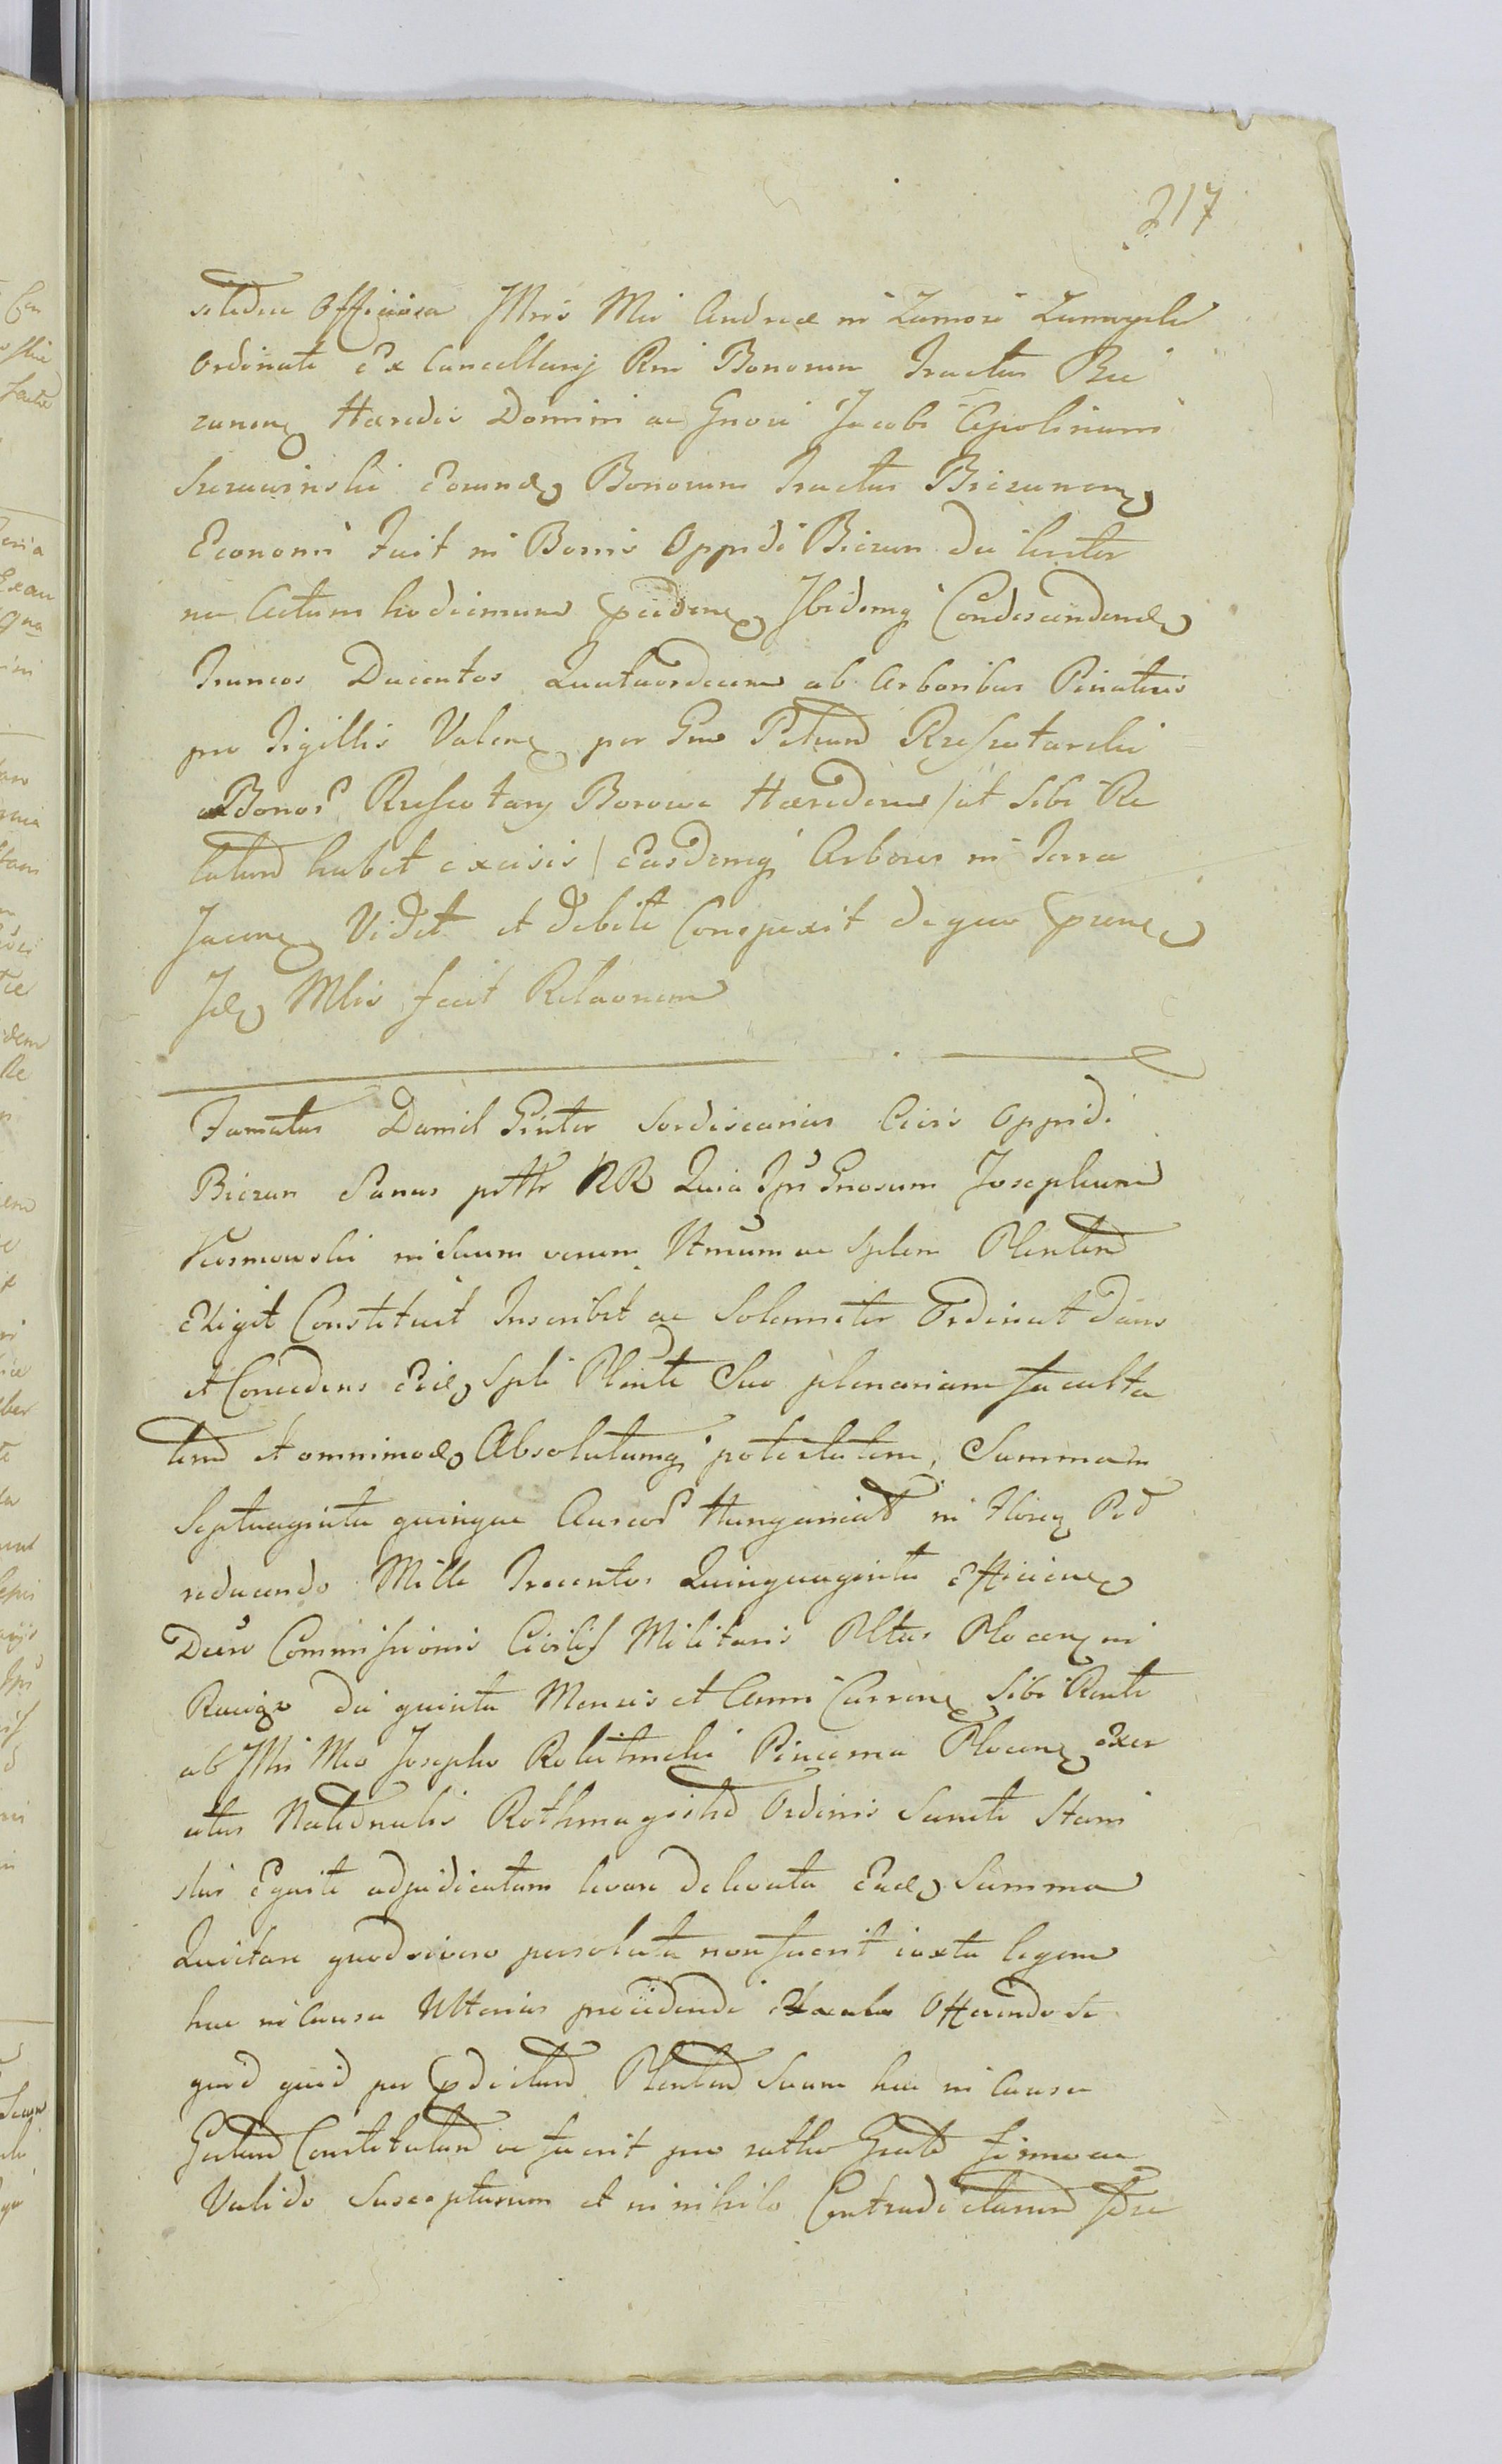 217
Officiosa Illris Mci Andreæ in Zamość Zamoyski
Ordinati Ex Cancellarij Rni Bonorum Tractus Bie
zunen Hæredis Domini ac Gnosi Jacobi Apolinarii
Eorund Bonorum Tractus Biezunen
Economi fuit in Bonis Oppidi Biezun die
ne Actum hodiernum Ibidemq Condescendend
Truncos Ducentos Quatuordecim ab Arboribus Pinaticis
pro Tigillis Valen per Gnm Petrum Rzeszotarski
Bonor Rzeszotary Borowe Hæredem / ut sibi Re
latum habet excisis / Easdemq Arbores in Terra
Jacen Vidit et debite Conspexit de quo
Id Mlis fecit Relaonem
Famatus Daniel Ginter Civis Oppidi
Biezun Sanus ptthr RR Quia Ipse Gnosum Josephum
in suum verum Ltmum ac splem Plentem
Eligit Constituit Inscribit ac Solemniter Ordinat dans
et Concedens Eid spli Plenti Suo plenariam faculta
tem et omnimod Absolutamq potestatem, Summam
Septuaginta quinque Aureor Hungarical in flor Pol
reducendo Mille Trecentos Quinquaginta Efficien
Decro Commissionis Civilis Militaris Pltus Plocen in
Raciąż die quinta Mensis et Anni Curren sibi
ab Illri Mco Josepho Pincerna Plocen Exer
citus Nationalis Rothmagistro Ordinis Sancti Stani
slai Equite adjudicatam levare de levata Ead Summa
Quietare quodsi vero persoluta non fuerit iuxta legem
hac in Causa Ulterius procedendi Offerendo se
quid quid per Plentem Suum hac in Causa
Gestum Constitutum ve fuerit pro ratho Grato firmo ac
Valido Suscepturum et in nihilo Contradicturum fore